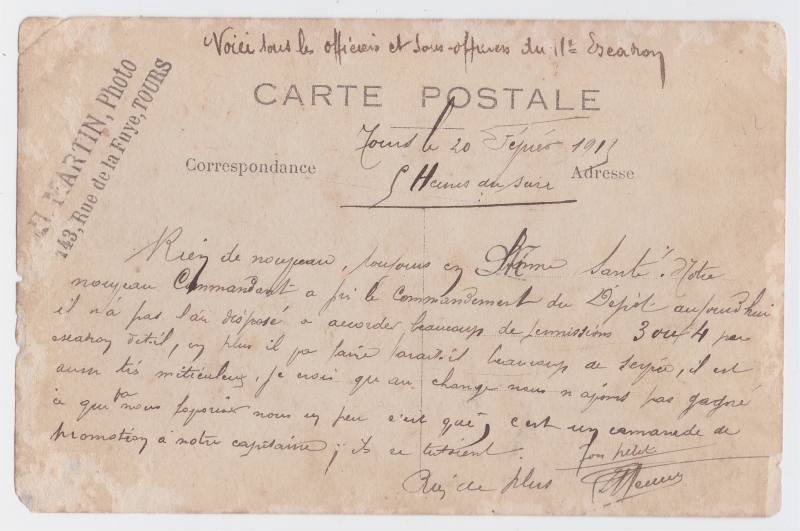 Voici tous les officiers et sous-officiers du 11e Escadron
CARTE POSTALE
H. MARTIN, Photo
143, Rue de la Fuye, TOURS
Tours le 20 Février 1915
Correspondance
Adresse
5 Heures du Soir
Rien de nouveau, toujours en même Santé. Notre
nouveau Commandant a pri le Commandement du Dépôt aujourd'hui
il n'a pas l'air disposé a accorder beaucoup de permissions 3 ou 4 par
escadron dit il, en plus il va faire parait il beaucoup de service, il est
aussi très méticuleux, je crois que au change nous n'avons pas gagné
ce qui va nous favoriser nous un peu c'est que, c'est un camarade de
promotion à notre capitaine, ils se tutoient.
Ton petit
Rien de plus